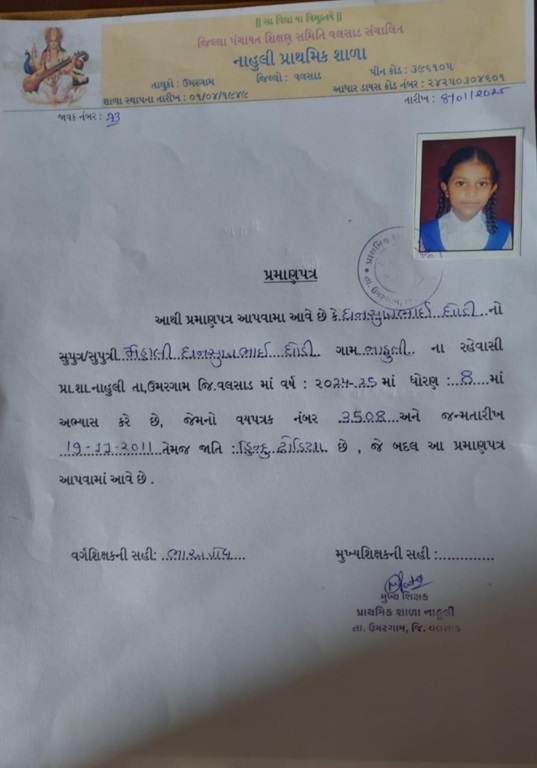 || સા વિદ્યા યા વિમુક્તયે ||
જિલ્લા પંચાયત શિક્ષણ સમિતિ વલસાડ સંચાલિત
નાહુલી પ્રાથમિક શાળા
તાલુકો : ઉમરગામ જિલ્લો : વલસાડ પીન કોડ : ૩૯૬૧૦૫
શાળા સ્થાપના તારીખ : ૦૧/૦૪/૧૯૪૯ આધાર ડાયસ કોડ નંબર : ૨૪૨૫૦૩૦૪૬૦૧
જાવક નંબર : 73 તારીખ : 8/01/2025
પ્રમાણપત્ર
આથી પ્રમાણપત્ર આપવામા આવે છે કે ધનસુખભાઈ ધોડી નો
સુપુત્ર/સુપુત્રી ધનસુખભાઈ ધોડી ગામ નાહુલી ના રહેવાસી
પ્રા.શા.નાહુલી તા,ઉમરગામ જિ.વલસાડ માં વર્ષ : ૨૦૨૪-૨૫ માં ધોરણ : 8 માં
અભ્યાસ કરે છે, જેમનો વયપત્રક નંબર 3508 અને જન્મતારીખ
તેમજ જાતિ : હિન્દુ ઢોડિયા છે , જે બદલ આ પ્રમાણપત્ર
આપવામાં આવે છે .
વર્ગશિક્ષકની સહી: મુખ્યશિક્ષકની સહી :
મુખ્ય શિક્ષક
પ્રાથમિક શાળા નાહુલી
તા. ઉમરગામ, જિ. વલસાડ